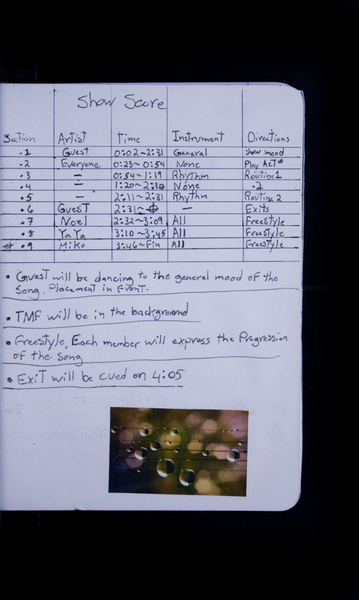 Show Score
Section Artist Time Instrument Directions
.1 Guest 0:02~2:31 General Show mood
.2 Everyone 0:23~0:54 None Play ACT*
.3 — 0:54~1:19 Rhythm Routine 1
.4 — 1:20~2:10 None .2
.5 — 2:11~2:31 Rhythm Routine 2
.6 Guest 2:31~ — Exits
.7 Noel 2:32~3:09 All Freestyle
.8 YaYa 3:10~3:45 All Freestyle
.9 Miko 3:46~Fin All Freestyle
• Guest will be dancing to the general mood of the
song. Placement in Front.
• TMF will be in the background
• Freestyle. Each member will express the Progression
of the song
• Exit will be cued on 4:05